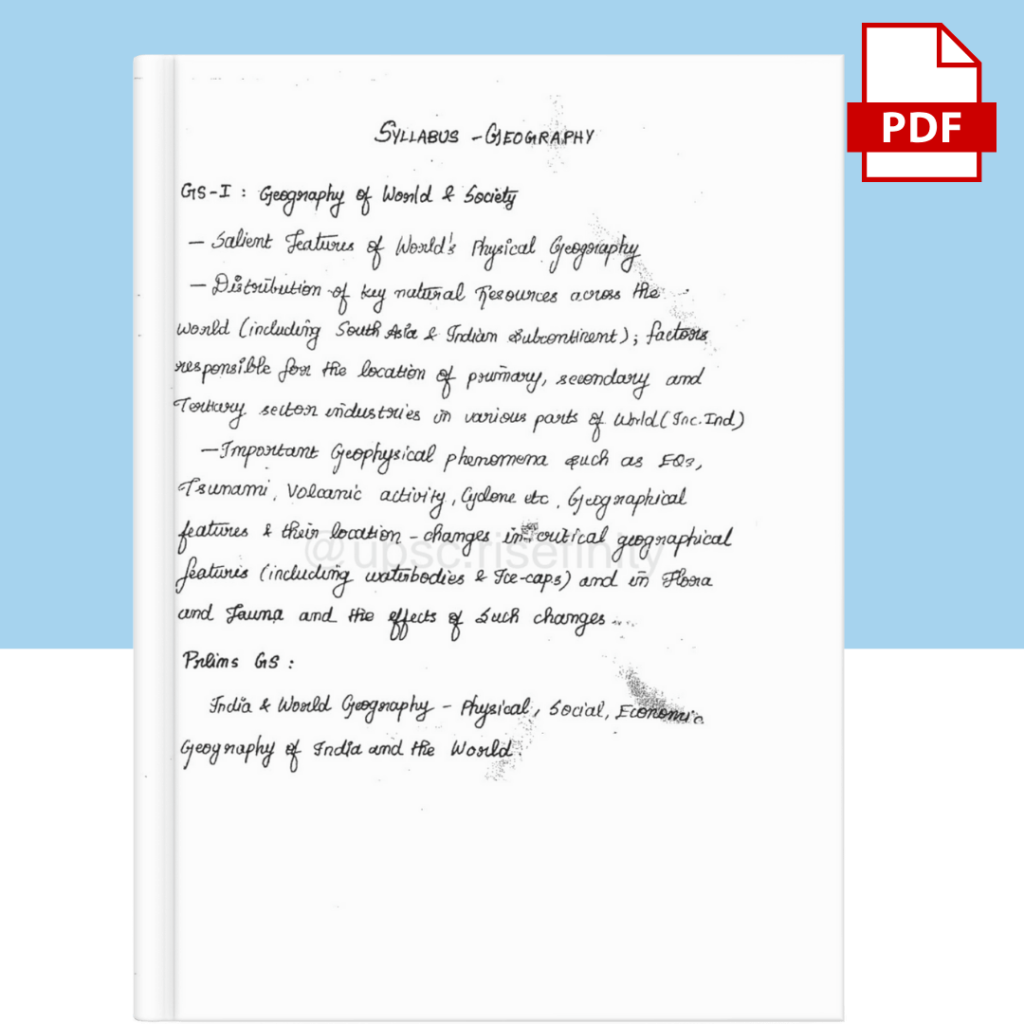 PDF
SYLLABUS - GEOGRAPHY
GS-I : Geography of World & Society
- Salient Features of World's Physical Geography
- Distribution of key natural Resources across the
world (including South Asia & Indian Subcontinent); factors
responsible for the location of primary, secondary and
Tertiary sector industries in various parts of World (Inc. Ind)
- Important Geophysical phenomena such as EQs,
Tsunami, Volcanic activity, Cyclone etc, Geographical
features & their location - changes in critical geographical
@upsc.risefinity
features (including waterbodies & Ice-caps) and in Flora
and Fauna and the effects of such changes...
Prelims GS :
India & World Geography - Physical, Social, Economic
Geography of India and the World.